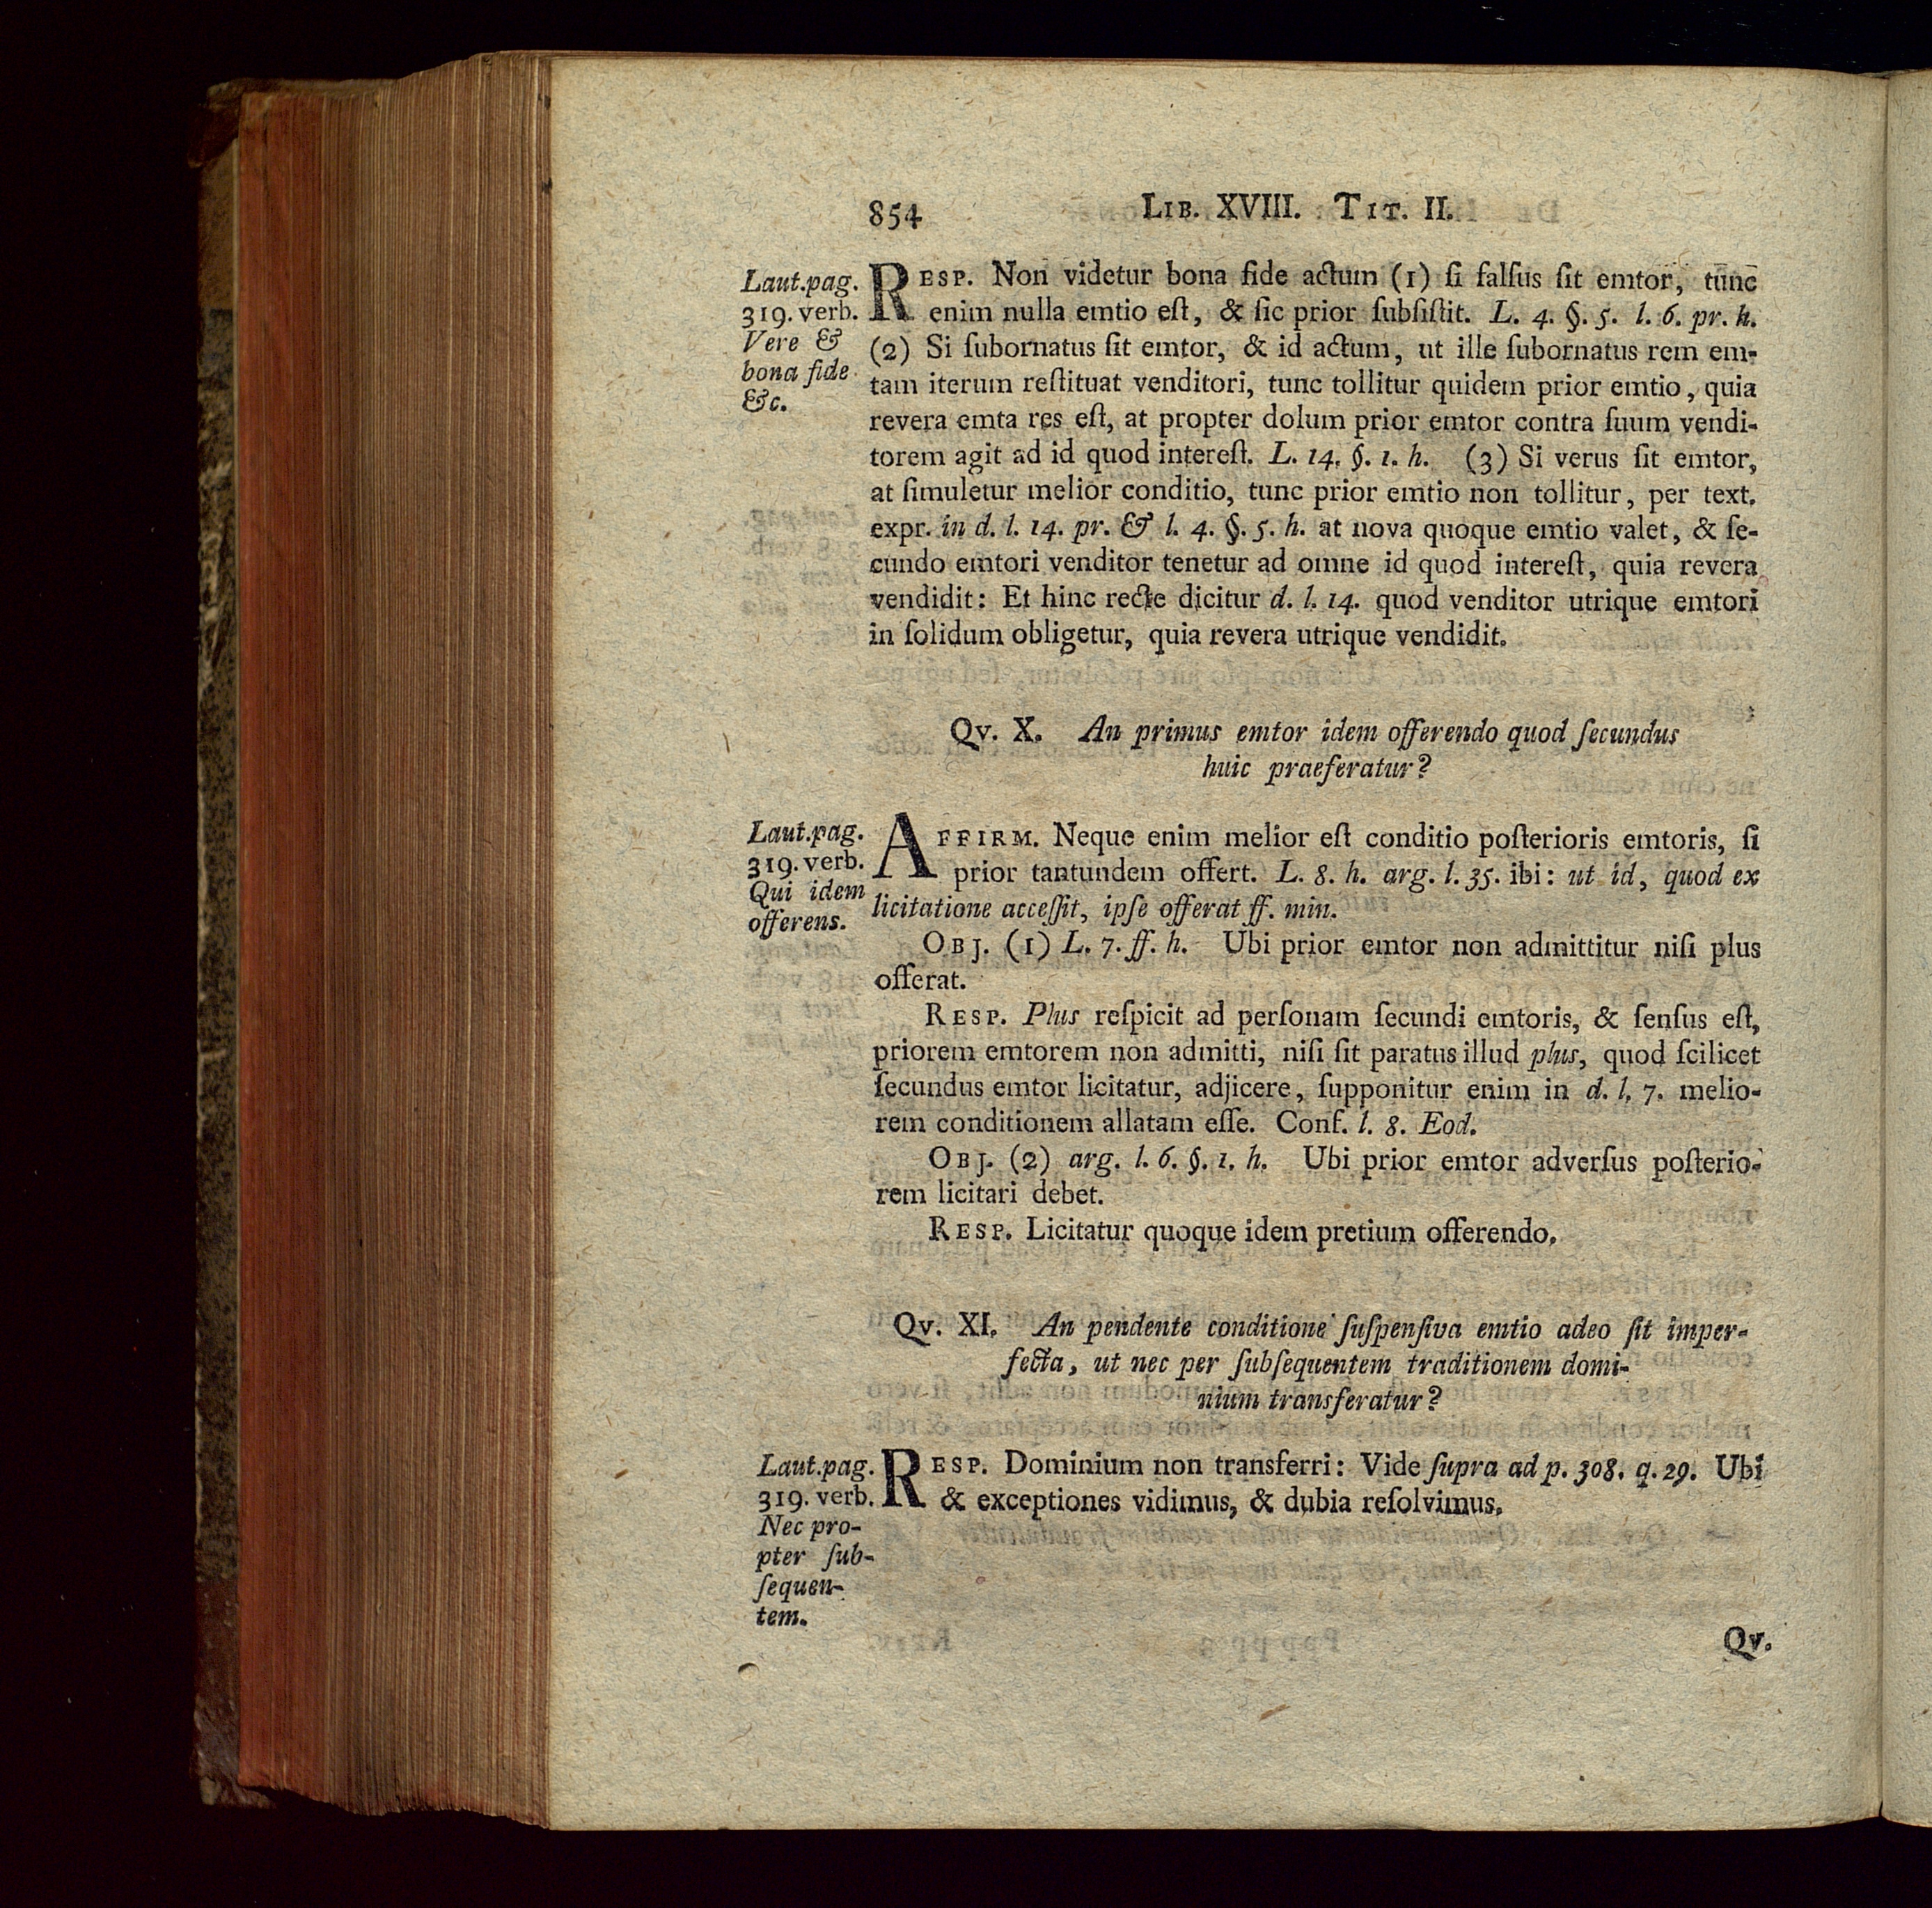 854 LIB. XVIII. TIT. II.
Laut. pag.
319. verb.
Vere &
bona fide
&c.
RESP. Non videtur bona fide actum (1) ſi falſus ſit emtor, tunc
enim nulla emtio eſt, & ſic prior ſubſiſtit. L. 4. §. 5. l. 6. pr. h.
(2) Si ſubornatus ſit emtor, & id actum, ut ille ſubornatus rem em-
tam iterum reſtituat venditori, tunc tollitur quidem prior emtio, quia
revera emta res eſt, at propter dolum prior emtor contra ſuum vendi-
torem agit ad id quod intereſt. L. 14. §. 1. h. (3) Si verus ſit emtor,
at ſimuletur melior conditio, tunc prior emtio non tollitur, per text.
expr. in d. l. 14. pr. & l. 4. §. 5. h. at nova quoque emtio valet, & ſe-
cundo emtori venditor tenetur ad omne id quod intereſt, quia revera
vendidit: Et hinc recte dicitur d. l. 14. quod venditor utrique emtori
in ſolidum obligetur, quia revera utrique vendidit.
Qv. X. An primus emtor idem offerendo quod ſecundus
huic praeferatur?
Laut. pag.
319. verb.
Qui idem
offerens.
AFFIRM. Neque enim melior eſt conditio poſterioris emtoris, ſi
prior tantundem offert. L. 8. h. arg. l. 35. ibi: ut id, quod ex
licitatione acceſſit, ipſe offerat ff. min.
OBJ. (1) L. 7. ff. h. Ubi prior emtor non admittitur niſi plus
offerat.
RESP. Plus reſpicit ad perſonam ſecundi emtoris, & ſenſus eſt,
priorem emtorem non admitti, niſi ſit paratus illud plus, quod ſcilicet
ſecundus emtor licitatur, adjicere, ſupponitur enim in d. l. 7. melio-
rem conditionem allatam eſſe. Conf. l. 8. Eod.
OBJ. (2) arg. l. 6. §. 1. h. Ubi prior emtor adverſus poſterio-
rem licitari debet.
RESP. Licitatur quoque idem pretium offerendo.
Qv. XI. An pendente conditione ſuſpenſiva emtio adeo ſit imper-
fecta, ut nec per ſubſequentem traditionem domi-
nium transferatur?
Laut. pag.
319. verb.
Nec pro-
pter ſub-
ſequen-
tem.
RESP. Dominium non transferri: Vide ſupra ad p. 308. q. 29. Ubi
& exceptiones vidimus, & dubia reſolvimus.
Qv.